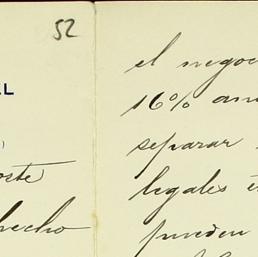 52
EL
)
oste
hecho
el negoc
16% anu
separar
legales e
pueden